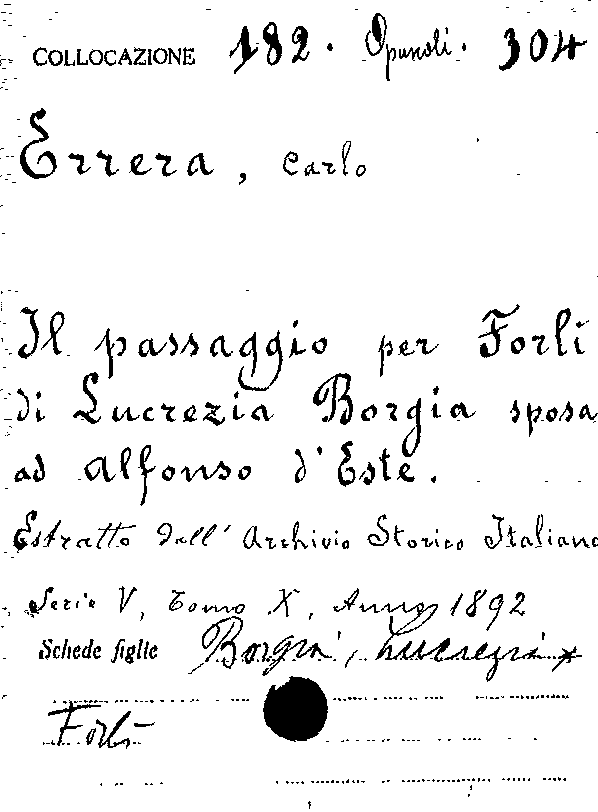 COLLOCAZIONE 182. Opuscoli. 304
Errera, Carlo
Il passaggio per Forlì
di Lucrezia Borgia sposa
ad Alfonso d'Este.
Estratto dall'Archivio Storico Italiano
Serie V, Tomo X, Anno 1892
Schede figlie Borgia, Lucrezia *
Forlì